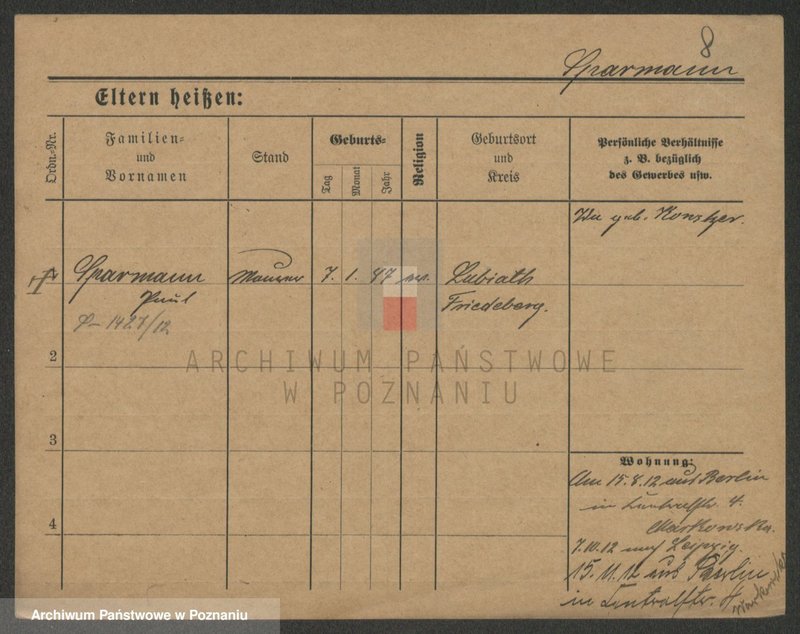 8
Sparmann
Eltern heißen:
Ordn.-Nr.
Familien-
und
Vornamen
Stand
Geburts-
Tag
Monat
Jahr
Religion
Geburtsort
und
Kreis
Persönliche Verhältnisse
z. B. bezüglich
des Gewerbes usw.
geb.
Sparmann
Paul
Maurer
7. 1. 47
Lubiath
Friedeberg.
1427/12
2
3
4
Wohnung:
Am 15.8.12 aus Berlin
in 4.
Markowska.
7.10.12 nach Leipzig.
15.11.12 aus Berlin
in
ARCHIWUM PAŃSTWOWE
W POZNANIU
Archiwum Państwowe w Poznaniu